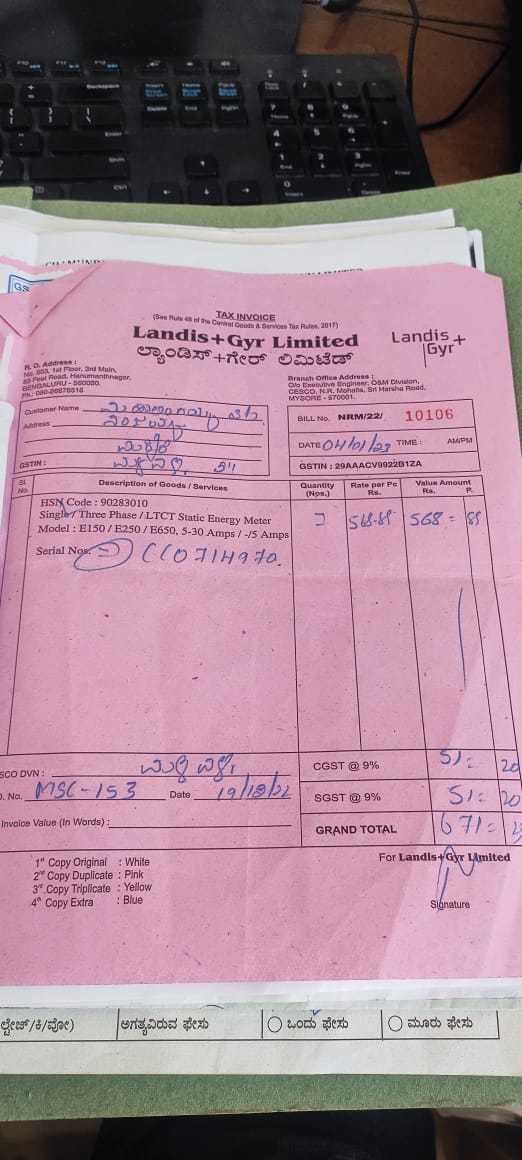 Backspace
Enter
Shift
Ctrl
GS
TAX INVOICE
(See Rule 46 of the Central Goods & Services Tax Rules, 2017)
Landis+Gyr Limited
ಲ್ಯಾಂಡಿಸ್+ಗೇರ್ ಲಿಮಿಟೆಡ್
Landis+
Gyr
R. O. Address :
No. 503, 1st Floor, 3rd Main,
50 Feet Road, Hanumanthnagar,
BENGALURU - 560050.
Ph.: 080-26678616
Branch Office Address :
O/o Executive Engineer, O&M Division,
CESCO, N.R. Mohalla, Sri Harsha Road,
MYSORE - 570001.
Customer Name
Address
GSTIN :
BILL No. NRM/22/ 10106
DATE 04/01/23 TIME : AM/PM
GSTIN : 29AAACV9922B1ZA
Sl. No. Description of Goods / Services Quantity (Nos.) Rate per Pc Rs. Value Amount Rs. P.
HSN Code : 90283010
Single / Three Phase / LTCT Static Energy Meter
Model : E150 / E250 / E650, 5-30 Amps / -/5 Amps
568-89 568= 89
Serial Nos. CC0714970.
SCO DVN : ಮಳ್ಳವಳ್ಳಿ
CGST @ 9% 51= 20
No. MSC-153 Date 19/12/22
SGST @ 9% 51= 20
Invoice Value (In Words) :
GRAND TOTAL 671=
1st Copy Original : White
2nd Copy Duplicate : Pink
3rd Copy Triplicate : Yellow
4th Copy Extra : Blue
For Landis+Gyr Limited
Signature
ಲ್ಟೇಜ್/ಕಿ/ವೋ) ಅಗತ್ಯವಿರುವ ಫೇಸು ಒಂದು ಫೇಸು ಮೂರು ಫೇಸು